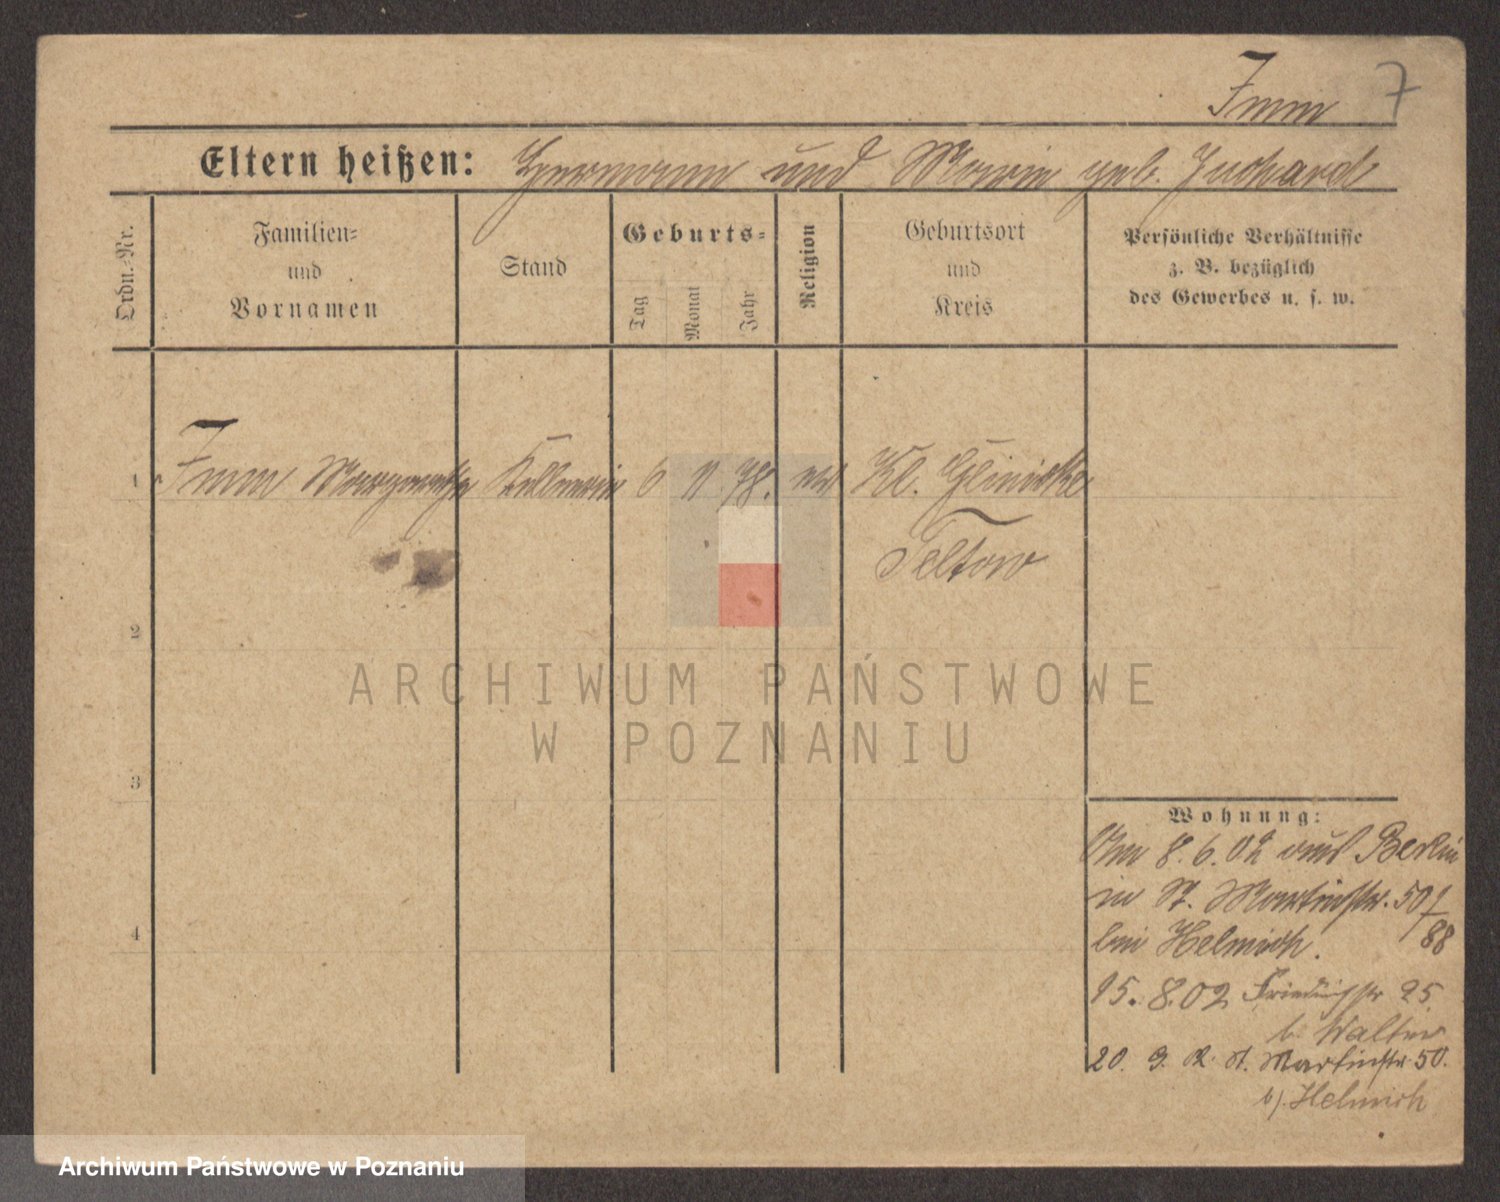 Imm 7
Eltern heißen: Hermann und Marie geb. Juchard
Ordn.-Nr.
Familien-
und
Vornamen
Stand
Geburts-
Tag
Monat
Jahr
Religion
Geburtsort
und
Kreis
Persönliche Verhältnisse
z. B. bezüglich
des Gewerbes u. s. w.
1 Imm Margarethe Kellnerin 6 11 78. ev Kl. Glinicke
Teltow
2
ARCHIWUM PAŃSTWOWE
W POZNANIU
3
Wohnung:
Am 8.6.02 aus Berlin
in St. Martinstr. 50/
88
bei Helmich.
15. 8.02 Friedrichstr 25.
b. Walter
20. 9. 02 St. Martinstr. 50.
b/. Helmich
4
Archiwum Państwowe w Poznaniu